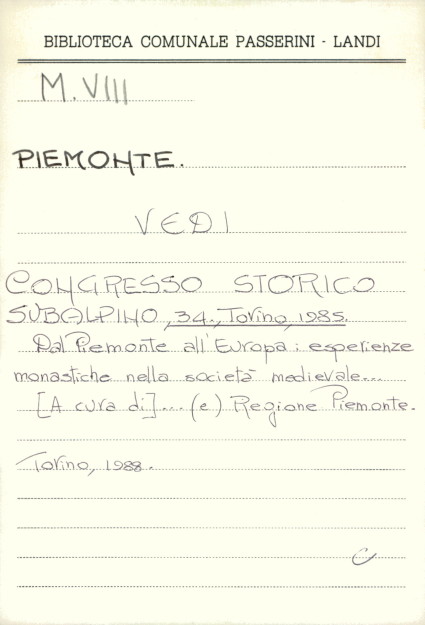 BIBLIOTECA COMUNALE PASSERINI - LANDI
M.VIII
PIEMONTE.
VEDI
CONGRESSO STORICO
SUBALPINO, 34., Torino, 1985.
Dal Piemonte all'Europa: esperienze
monastiche nella società medievale...
[A cura di]... (e) Regione Piemonte.
Torino, 1988.
C